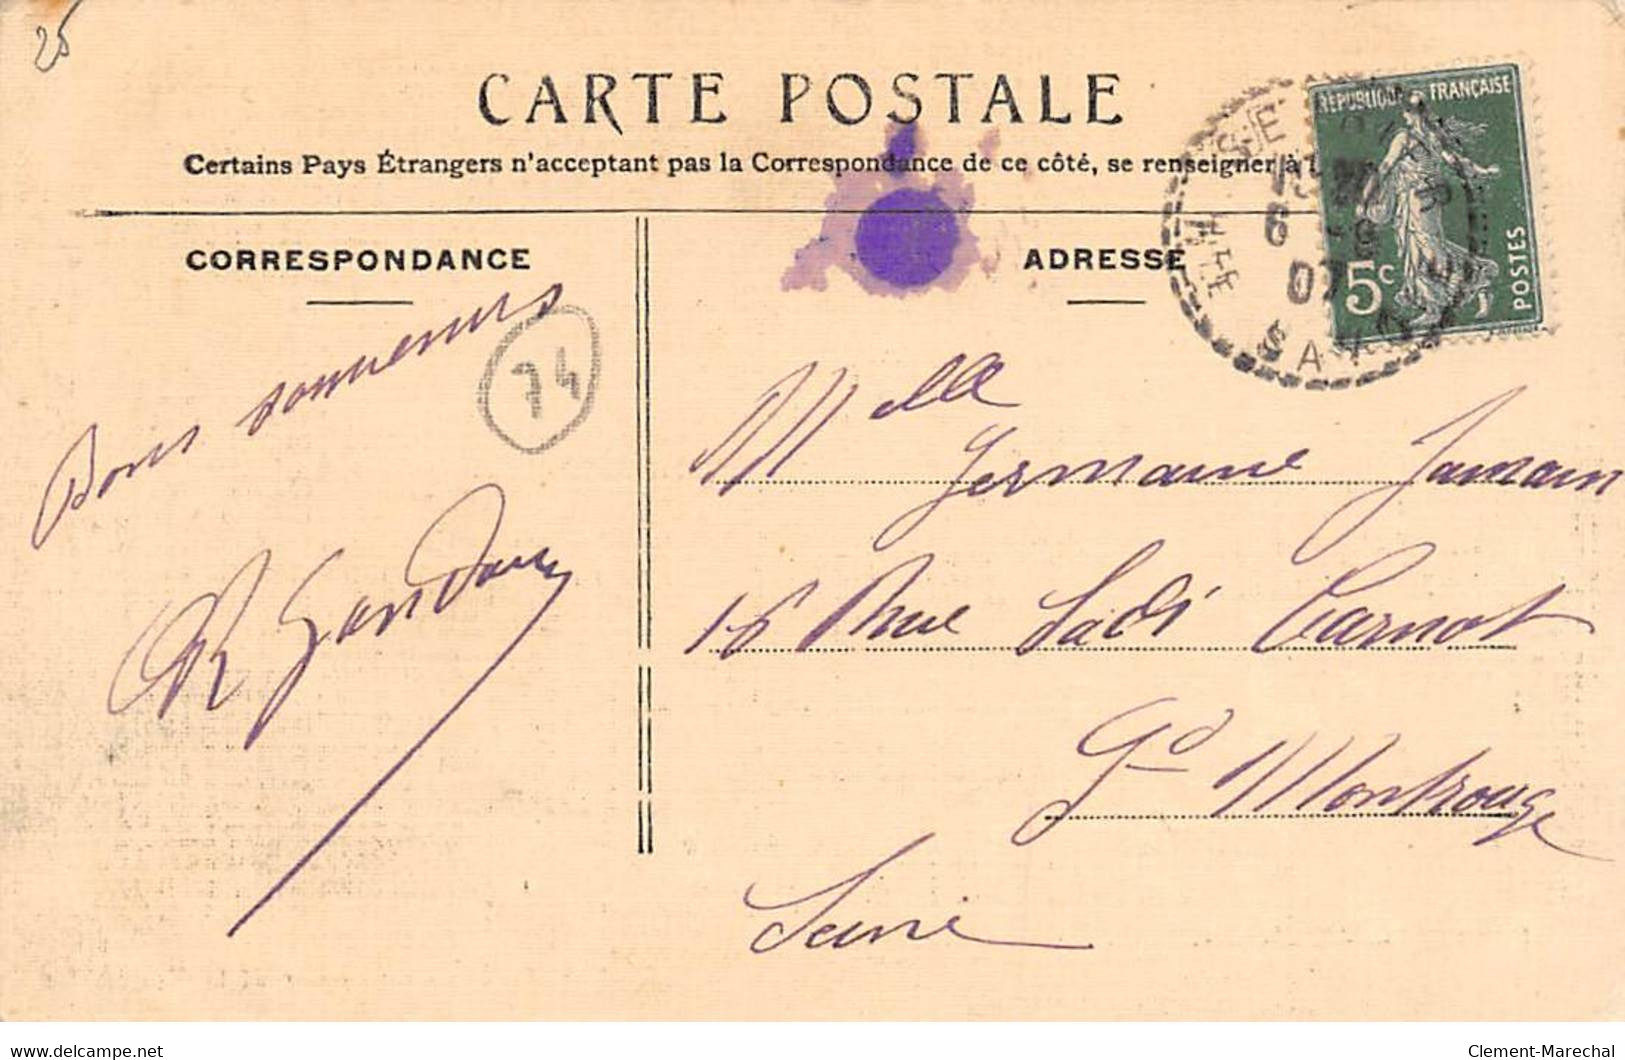 25
CARTE POSTALE
Certains Pays Étrangers n'acceptant pas la Correspondance de ce côté, se renseigner à l
CORRESPONDANCE
ADRESSE
RÉPUBLIQUE FRANÇAISE
5c
POSTES
6 -9
07
Bons souvenirs
74
Melle
Germaine Jamain
16 Rue Sadi Carnot
Gd Montrouge
Seine
delcampe.net
Clement-Marechal